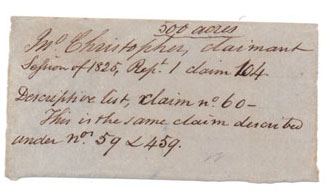 500 acres
Jno Christopher, claimant
Session of 1825, Rept. 1 claim 104
Descriptive list, claim no 60 -
This is the same claim described
under nos. 59 & 459.